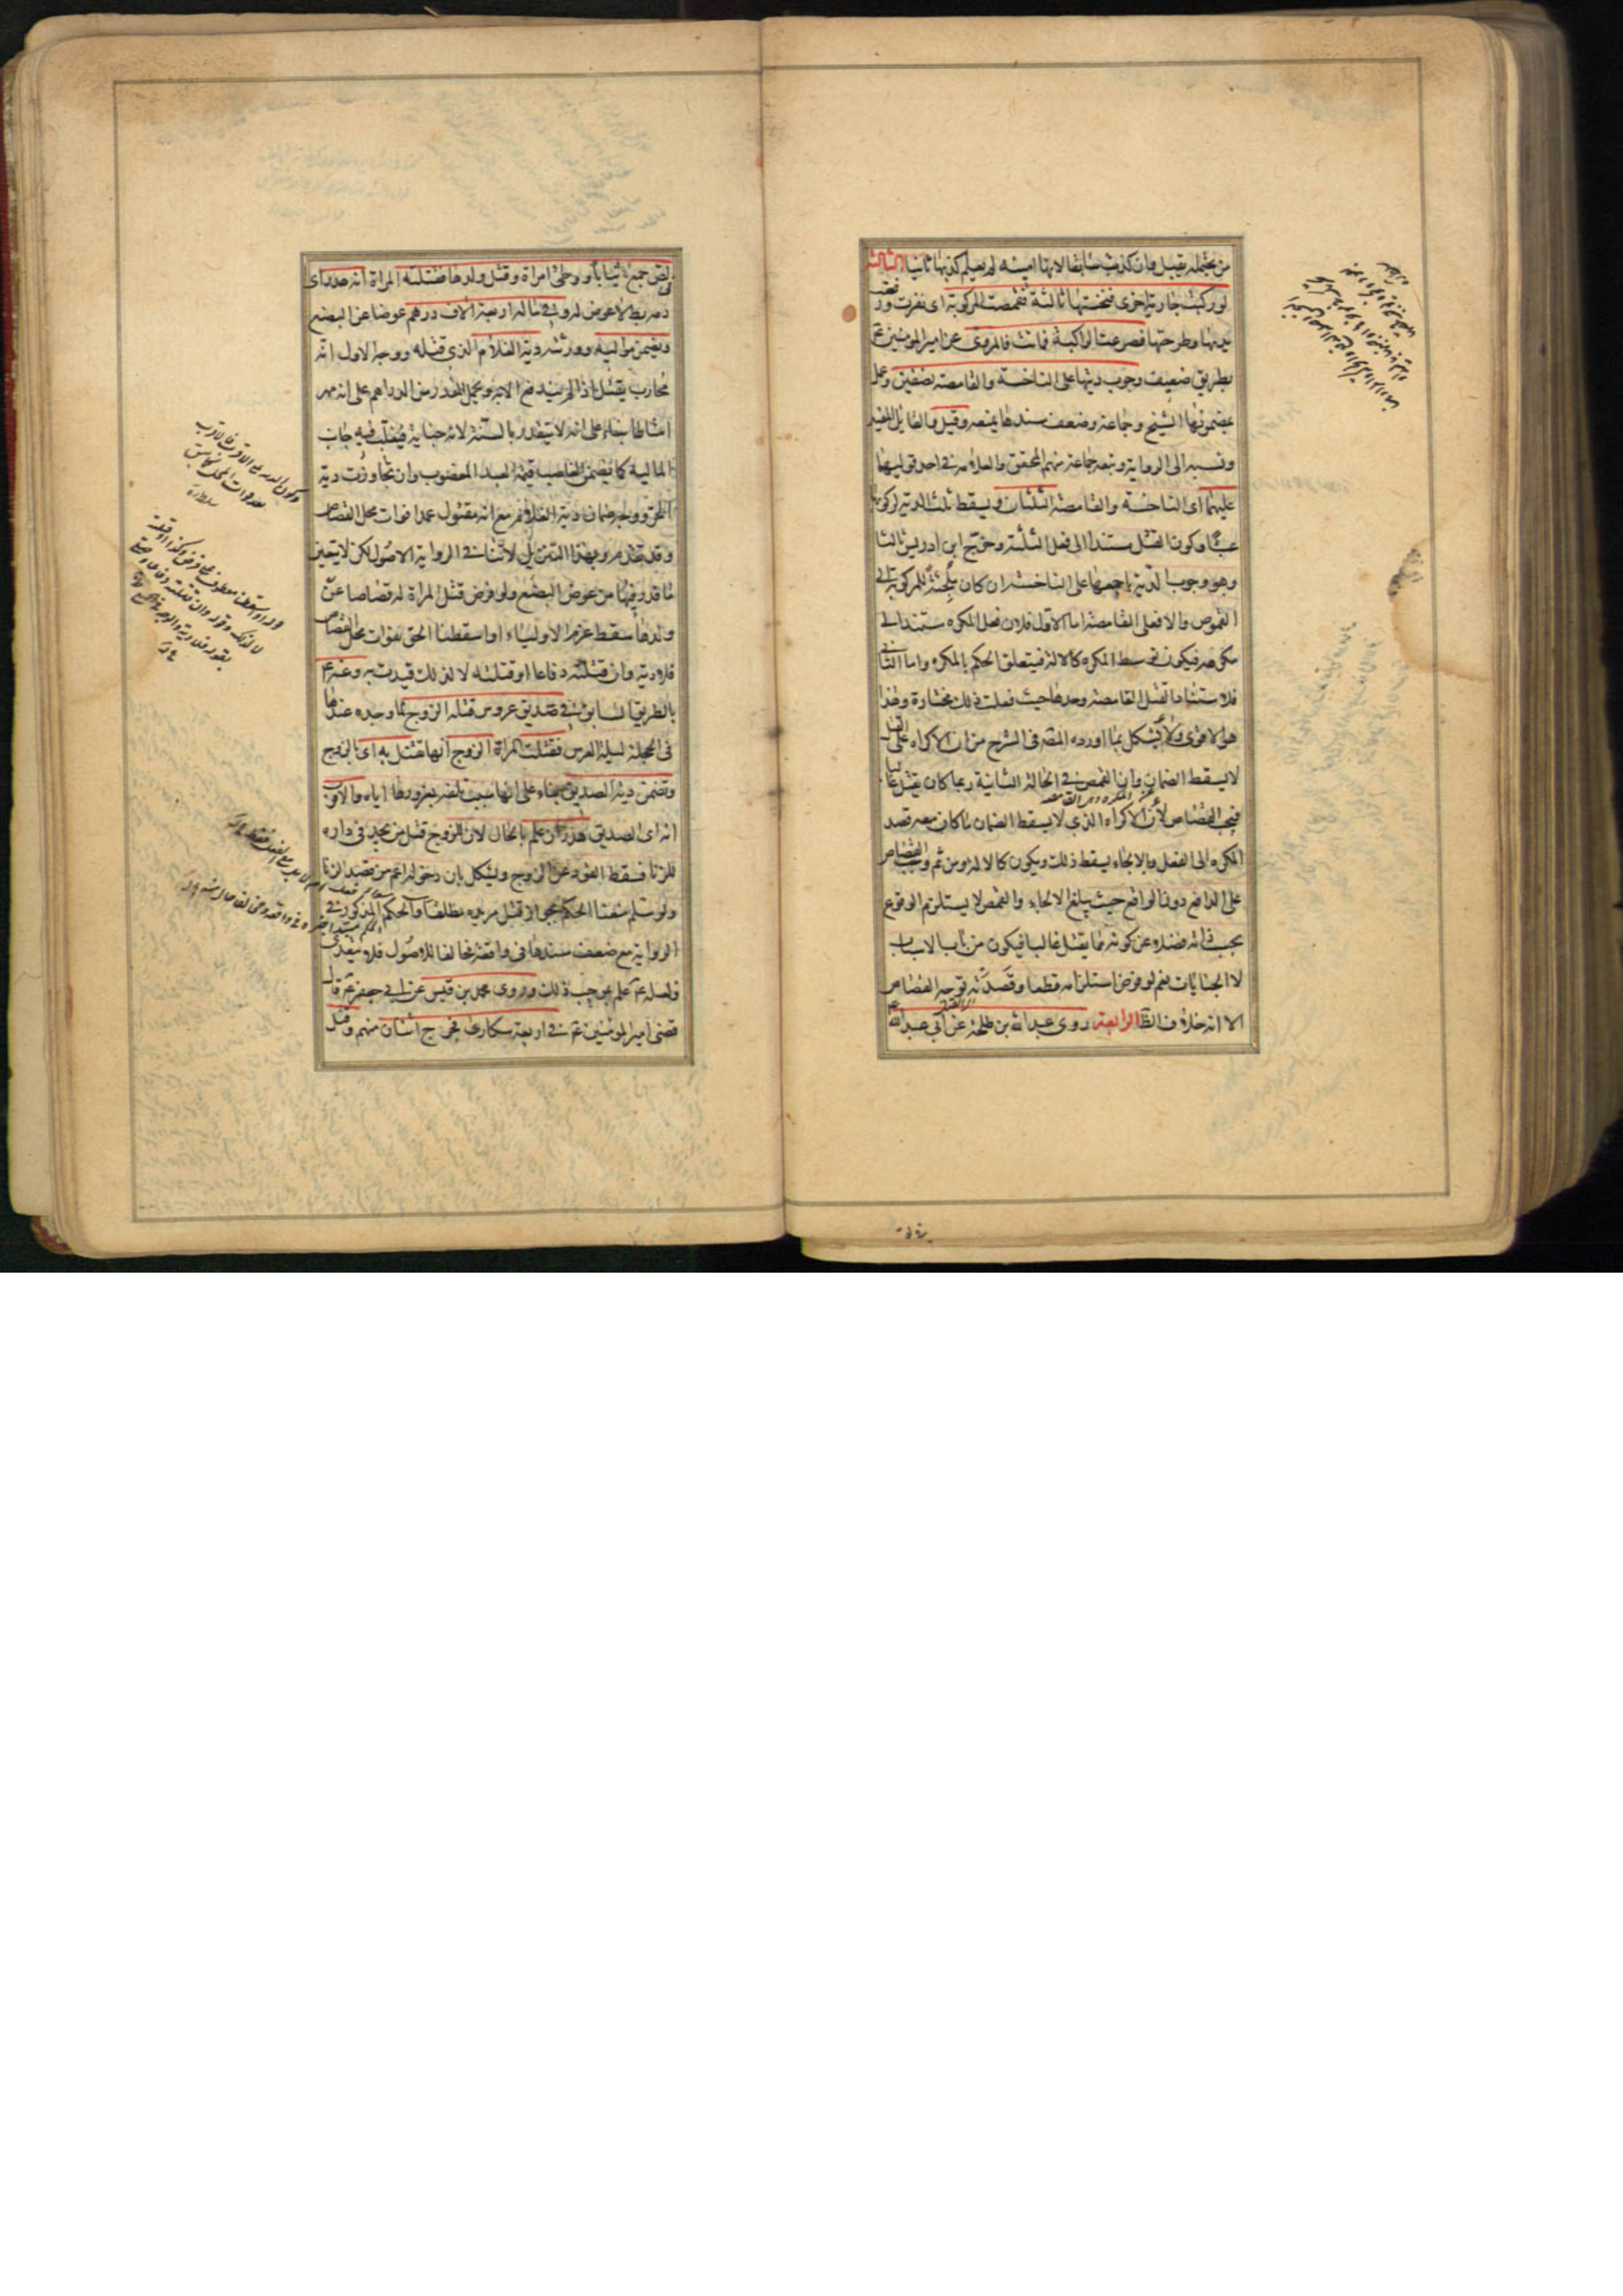 من يحتمله يقبل وان كذبت سابقا لانها امينه لم يعلم كذبها ثانيا الثالثة
لو ركبت جارية اخرى فنخستها ثالثة فقمصت المركوبة اى نفزت ورفعت
يديها وطرحتها فصرعت الراكبة فماتت فالمروى عن امير المؤمنين ع
بطريق ضعيف وجوب ديتها على الناخسة والقامصة نصفين وعمل
بمضمونها الشيخ وجماعة وضعف سندها يمنعه وقيل والقايل المفيد
ونسبه الى الرواية وتبعه جماعة منهم المحقق والعلامة في احد قوليهما
عليهما اى الناخسة والقامصة الثلثان ويسقط ثلث الدية لركوبها
عبثا وكون القتل مستندا الى فعل الثلثة وخرج ابن ادريس ثالثا
وهو وجوب الدية باجمعها على الناخسة ان كان ملجئة للمركوبة الى
القموص والا فعلى القامصة اما الاول فلان فعل المكره مستند الى
مكرهه فيكون توسط المكره كالالة فيتعلق الحكم بالمكره واما الثاني
فلاستناد القتل القامصة وحدها حيث فعلت ذلك مختارة وهذا
هو الاقوى ولا يشكل بما اورده المصه في الشرح من ان الاكراه على القتل
لا يسقط الضمان وان القمص في الحالة الثانية ربما كان يقتل غالبا
فيجب القصاص لان الاكراه الذي لا يسقط الضمان ما كان معه قصد
المكره الى الفعل وبالالجاء يسقط ذلك ويكون كالالة ومن ثم وجب القصاص
على الدافع دون الواقع حيث يبلغ الالجاء والقمص لا يستلزم الوقوع
بحسب ذاته فضلا عن كونه مما يقتل غالبا فيكون من باب الاسباب
لا الجنايات نعم لو فرض استلزامه قطعا وقصدته توجه القصاص
الا انه خلاف الظ الرابعة روى عبدالله بن طلحة عن ابي عبدالله ع
في لص جمع ثيابا ووطى امراة وقتل ولدها فقتلته المراة انه هدر اى
دمه بط لا عوض له وفي ماله اربعة الاف درهم عوضا عن البضع
ويضمن مواليه وورثته دية الغلام الذي قتله ووجه الاول انه
محارب يقتل اذا لم يندفع الا به ويحمل المقدر من الدراهم على انه مهر
امثالها بناء على انه لا يتقدر بالسنة لانه جناية فيغلب فيه جانب
المالية كما يضمن الغاصب قيمة العبد المغصوب وان تجاوزت دية
الحر ووجه ضمان دية الغلام مع انه مقتول عمدا فوات محل القصاص
وقد تقدم وبهذا التنزيل لا تنافي الرواية الاصول لكن لا يتعين
ما قدر فيها من عوض البضع ولو فرض قتل المراة له قصاصا عن
ولدها سقط غرم الاولياء او اسقطنا الحق بفوات محل القصاص
فلا دية وان قتلته دفاعا او قتلته لا لذلك قيدت به وعنه ع
بالطريق السابق في صديق عروس قتله الزوج لما وجده عندها
في الحجلة ليلة العرس فقتلت المراة الزوج انها تقتل به اى بالزوج
وتضمن دية الصديق بناء على انها سبب تلفه بغرورها اياه والاقرب
انه اى الصديق هدر ان علم بالحال لان للزوج قتل من يجد في داره
للزنا فسقط القود عن الزوج ويشكل بان دخوله اعم من قصد الزنا
ولو سلم منعنا الحكم بجواز قتل مريده مطلقا والحكم المذكور في
الرواية مع ضعف سندها في واقعة مخالفا للاصول فلا يتعدى
ولعله ع علم بموجب ذلك وروى محمد بن قيس عن ابي جعفر ع قال
قضى امير المؤمنين ع في اربعة سكارى فجرح اثنان منهم وقتل